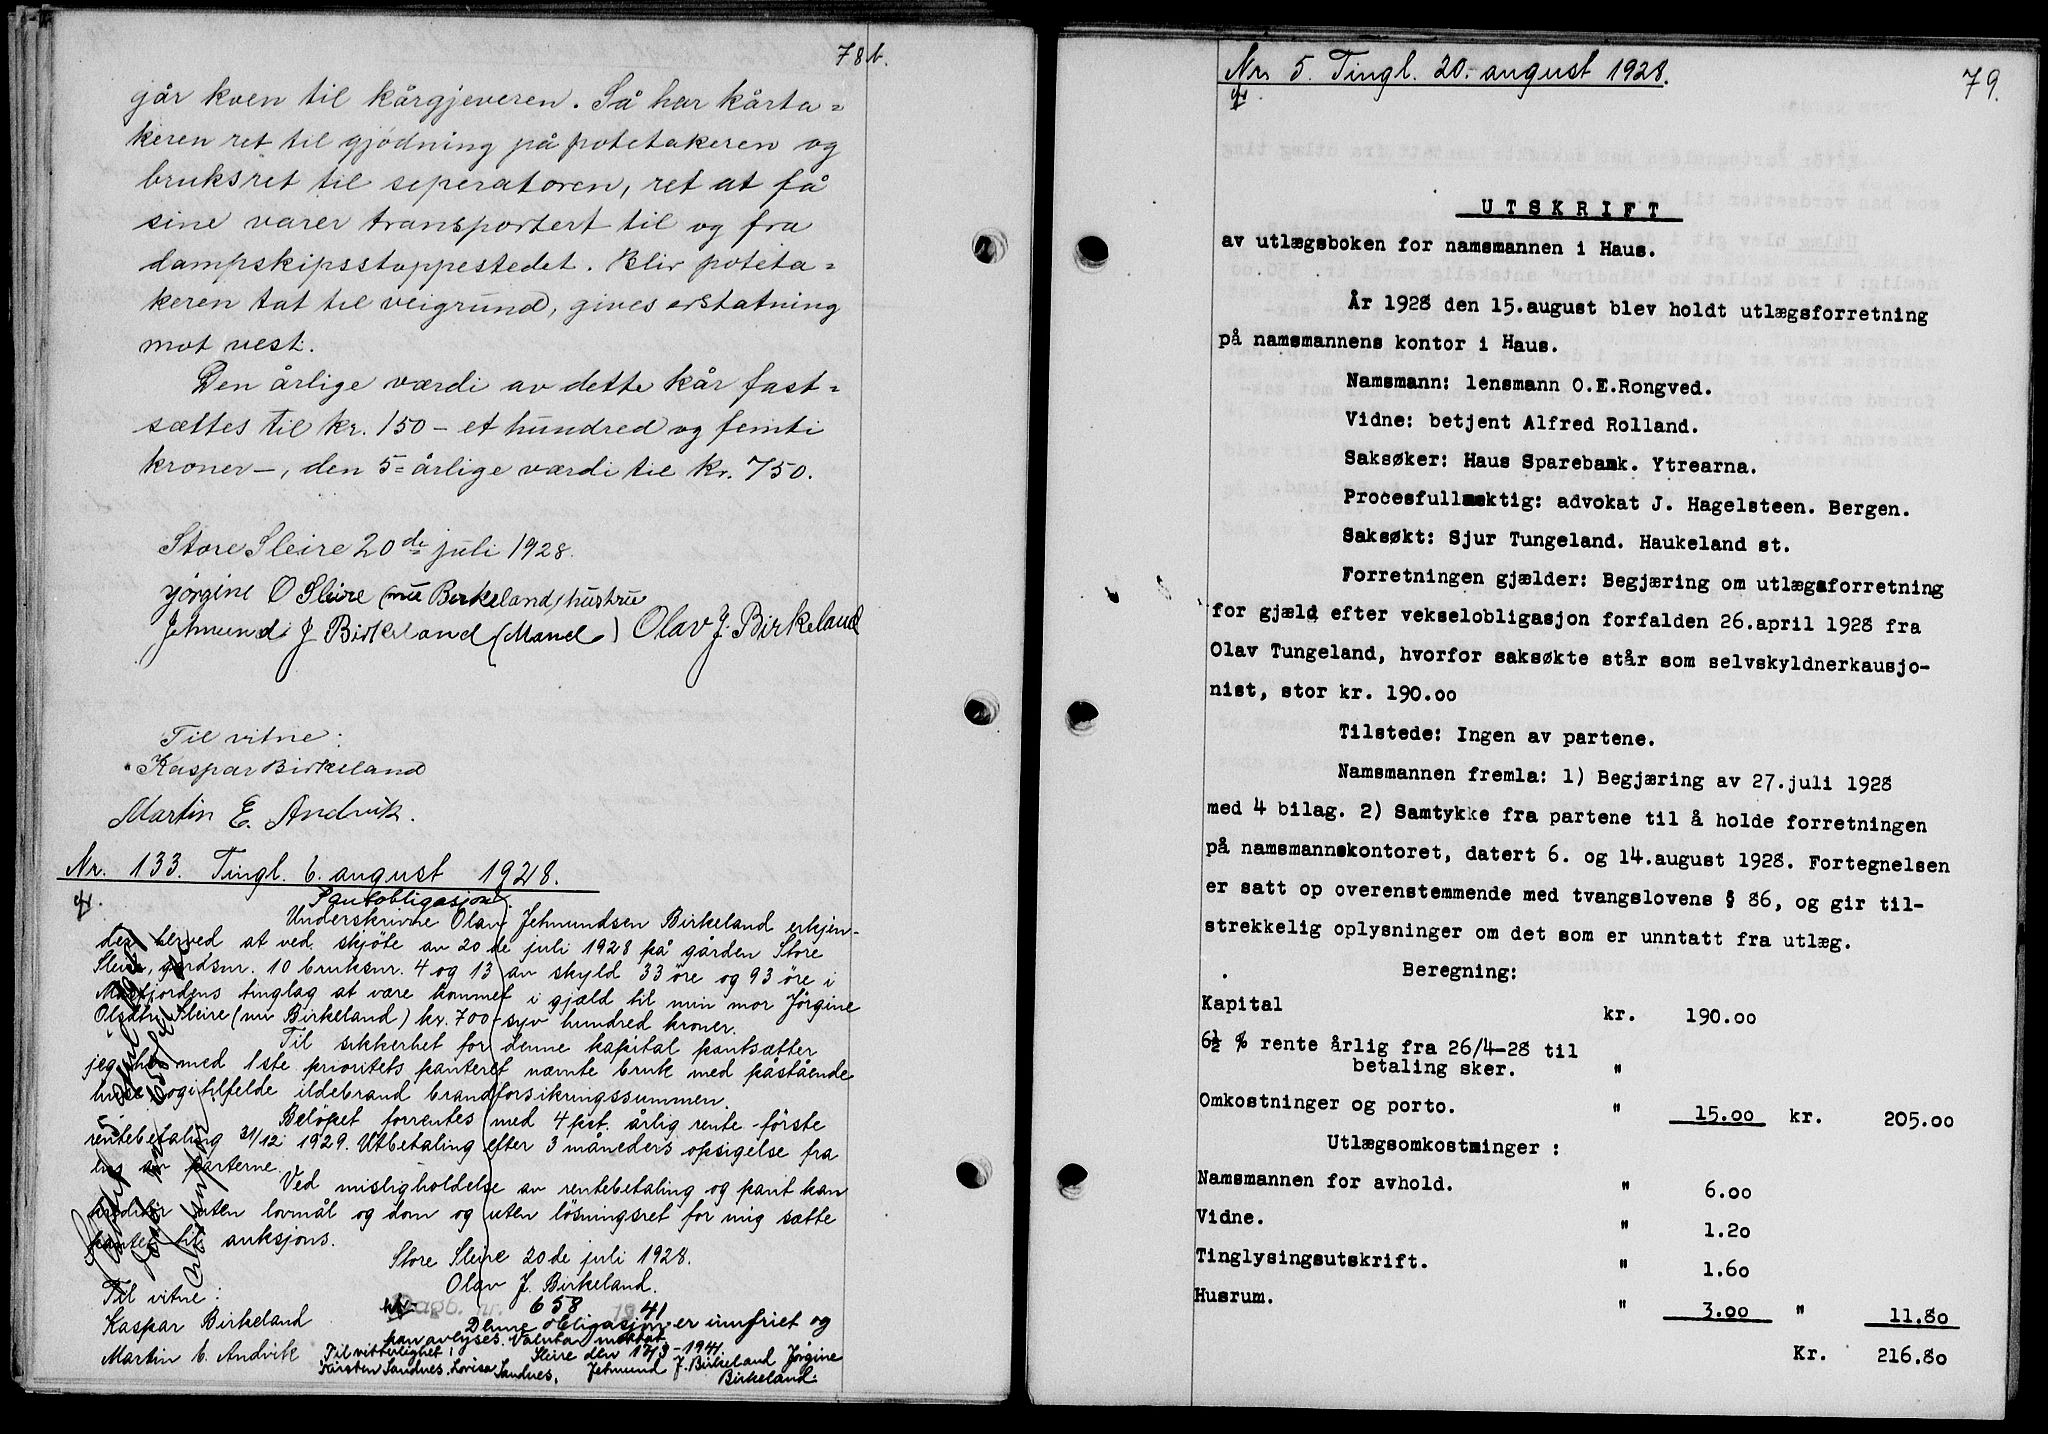 78 b.
går kven til kårgjeveren. Så har kårta=
keren ret til gjødning på potetakeren og
bruksret til seperatoren, ret at få
sine varer transportert til og fra
dampskipsstoppestedet. Blir poteta=
keren tat til veigrund, gives erstatning
mot vest.
Den årlige værdi av dette kår fast=
sættes til kr. 150 – et hundred og femti
kroner –, den 5=årlige værdi til kr. 750.
Store Sleire 20de juli 1928.
Jørgine O Sleire (nu Birkeland) hustru
Jetmund J Birkeland (Mand) Olav J. Birkeland
Til vitne:
Kaspar Birkeland
Martin E. Andvik.
Nr. 133. Tingl. 6. august 1928.
Pantobligasjon.
Underskrivne Olav Jetmundsen Birkeland erkjen-
der herved at ved skjöte av 20de juli 1928 på gården Store
Sleire, gardsnr. 10 bruksnr. 4 og 13 av skyld 33 öre og 93 öre i
Masfjordens tinglag at være kommet i gjæld til min mor Jörgine
Olsdtr. Sleire (nu Birkeland) kr. 700 – syv hundred kroner.
Til sikkerhet for denne kapital pantsætter
jeg med 1ste prioritets panteret nævnte bruk med påstående
huse og i tilfelde ildebrand brandforsikringssummen.
Belöpet forrentes med 4 pct. årlig rente – förste
rentebetaling 31/12 1929. Utbetaling efter 3 måneders opsigelse fra
en av parterne.
Ved misligholdelse av rentebetaling og pant kan
kreditor uten lovmål og dom og uten lösningsret for mig sætte
pantet til auksjons.
Store Sleire 20de juli 1928.
Olav J. Birkeland.
Til vitne:
Kaspar Birkeland
Martin E. Andvik
Dagb. nr. 658 1941
Denne obligasjon er innfriet og
kan avlyses. Valuta mottat.
Til vitterlighet: Sleire den 17/3 – 1941.
Kirsten Sandnes. Lovisa Sandnes. Jetmund J. Birkeland Jörgine
Birkeland.
79.
Nr. 5. Tingl. 20. august 1928.
UTSKRIFT
av utlægsboken for namsmannen i Haus.
År 1928 den 15.august blev holdt utlægsforretning
på namsmannens kontor i Haus.
Namsmann: lensmann O.E.Rongved.
Vidne: betjent Alfred Rolland.
Saksøker: Haus Sparebank. Ytrearna.
Procesfullmektig: advokat J. Hagelsteen. Bergen.
Saksøkt: Sjur Tungeland. Haukeland st.
Forretningen gjælder: Begjæring om utlægsforretning
for gjæld efter vekselobligasjon forfalden 26.april 1928 fra
Olav Tungeland, hvorfor saksøkte står som selvskyldnerkausjo-
nist, stor kr. 190.00
Tilstede: Ingen av partene.
Namsmannen fremla: 1) Begjæring av 27.juli 1928
med 4 bilag. 2) Samtykke fra partene til å holde forretningen
på namsmannskontoret, datert 6. og 14.august 1928. Fortegnelsen
er satt op overenstemmende med tvangslovens § 86, og gir til-
strekkelig oplysninger om det som er unntatt fra utlæg.
Beregning:
Kapital kr. 190.00
6½ % rente årlig fra 26/4-28 til
betaling sker. "
Omkostninger og porto. " 15.00 kr. 205.00
Utlægsomkostninger :
Namsmannen for avhold. " 6.00
Vidne. " 1.20
Tinglysingsutskrift. " 1.60
Husrum. " 3.00 " 11.80
Kr. 216.80